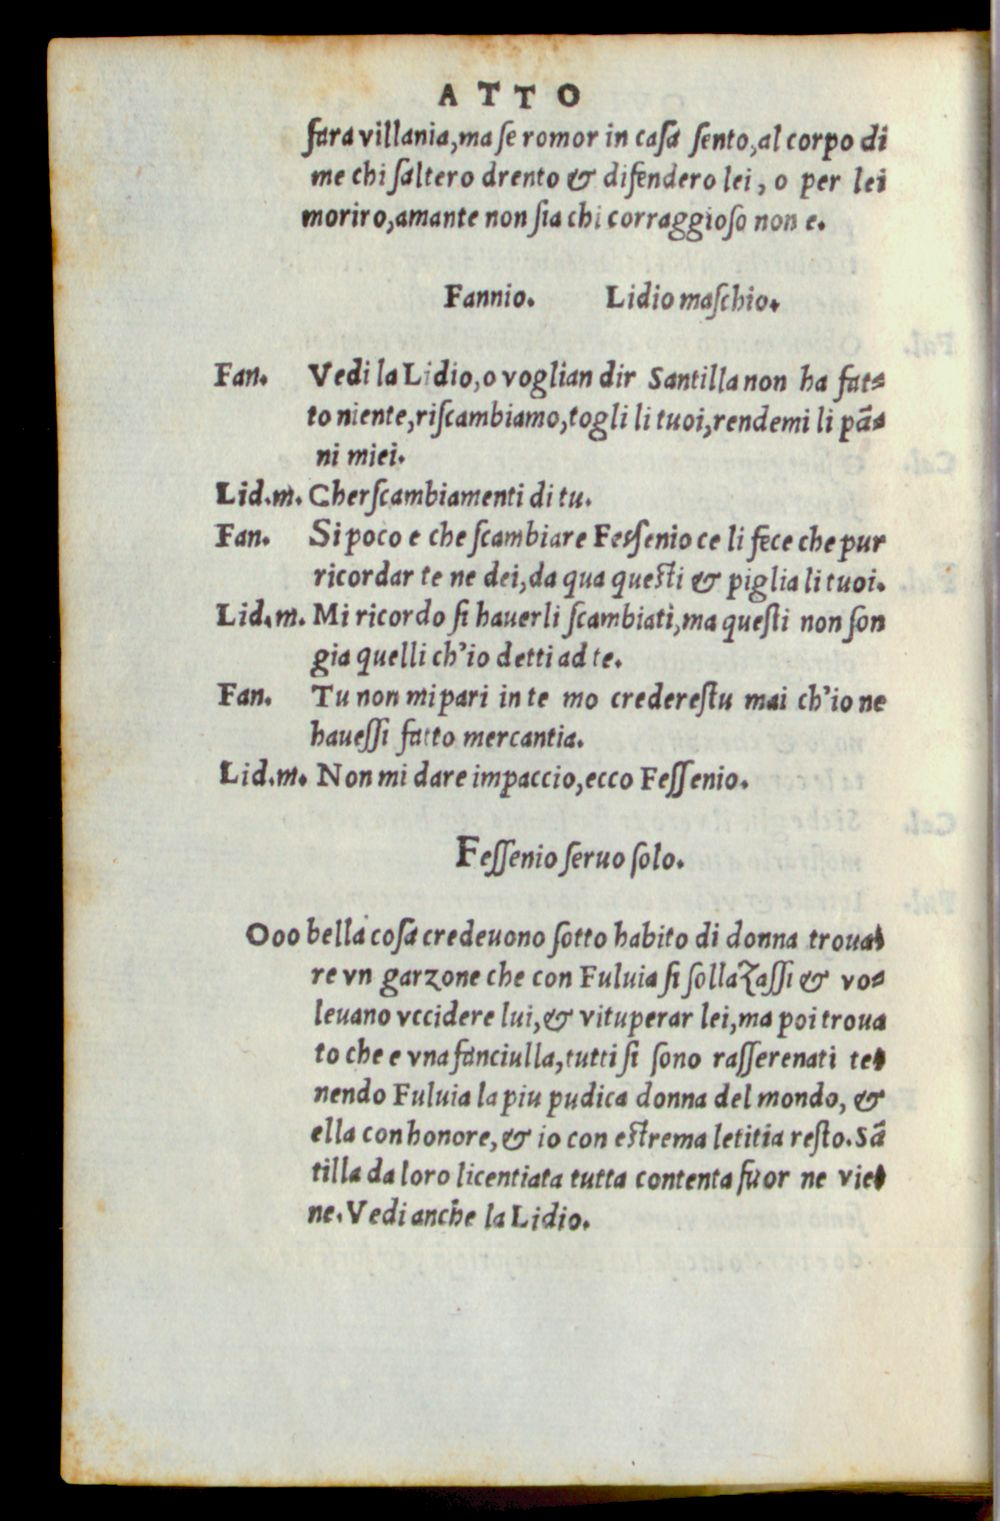 ATTO
fara villania,ma se romor in casa sento,al corpo di
me chi saltero drento & difendero lei, o per lei
moriro,amante non sia chi corraggioso non e.
Fannio. Lidio maschio.
Fan. Vedi la Lidio,o voglian dir Santilla non ha fat-
to niente,riscambiamo,togli li tuoi,rendemi li pã-
ni miei.
Lid.m. Che rscambiamenti di tu.
Fan. Si poco e che scambiare Fessenio ce li fece che pur
ricordar te ne dei,da qua questi & piglia li tuoi.
Lid.m. Mi ricordo si hauerli scambiati,ma questi non son
gia quelli ch'io detti ad te.
Fan. Tu non mi pari in te mo crederestu mai ch'io ne
hauessi fatto mercantia.
Lid.m. Non mi dare impaccio,ecco Fessenio.
Fessenio seruo solo.
Ooo bella cosa credeuono sotto habito di donna troua-
re vn garzone che con Fuluia si sollazassi & vo-
leuano vccidere lui,& vituperar lei,ma poi troua
to che e vna fanciulla,tutti si sono rasserenati te-
nendo Fuluia la piu pudica donna del mondo, &
ella con honore,& io con estrema letitia resto.Sã
tilla da loro licentiata tutta contenta fuor ne vie-
ne.Vedi anche la Lidio.